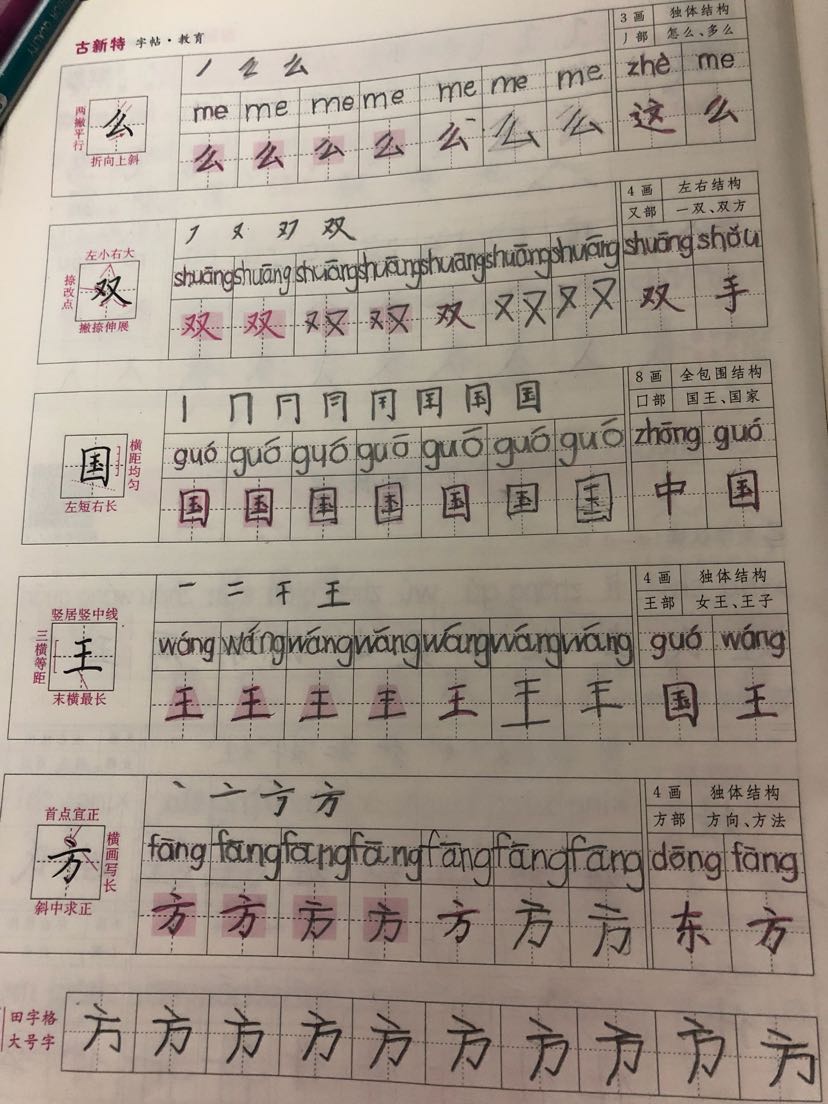 古新特 字帖·教育
3画 独体结构
丿部 怎么、多么
么
两撇平行
折向上斜
me me me me me me me zhè me
么 么 么 么 么 么 么 这 么
4画 左右结构
又部 一双、双方
双
左小右大
捺改点
撇捺伸展
フ 又 双 双
shuāng shuāng shuāng shuāng shuāng shuāng shuāng shuāng shǒu
双 双 双 双 双 双 双 双 手
8画 全包围结构
囗部 国王、国家
国
横距均匀
左短右长
丨 冂 国
guó guó guó guó guó guó guó zhōng guó
国 国 国 国 国 国 国 中 国
4画 独体结构
王部 女王、王子
王
竖居竖中线
三横等距
末横最长
一 二 干 王
wáng wáng wáng wáng wáng wáng wáng guó wáng
王 王 王 王 王 王 王 国 王
4画 独体结构
方部 方向、方法
方
首点宜正
横画写长
斜中求正
丶 亠 方
fāng fāng fāng fāng fāng fāng fāng dōng fāng
方 方 方 方 方 方 方 东 方
田字格
大号字
方 方 方 方 方 方 方 方 方 方